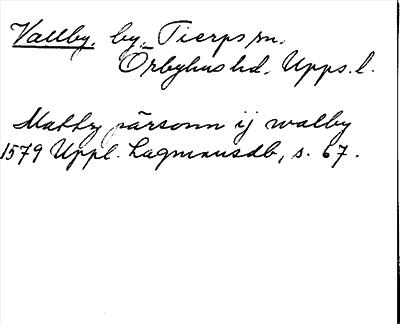 Vallby, by, Tierps sn.
Örbyhus hd. Upps. l.
Matthz pärsonn ij walby
1579 Uppl. Lagmansdb, s. 67.